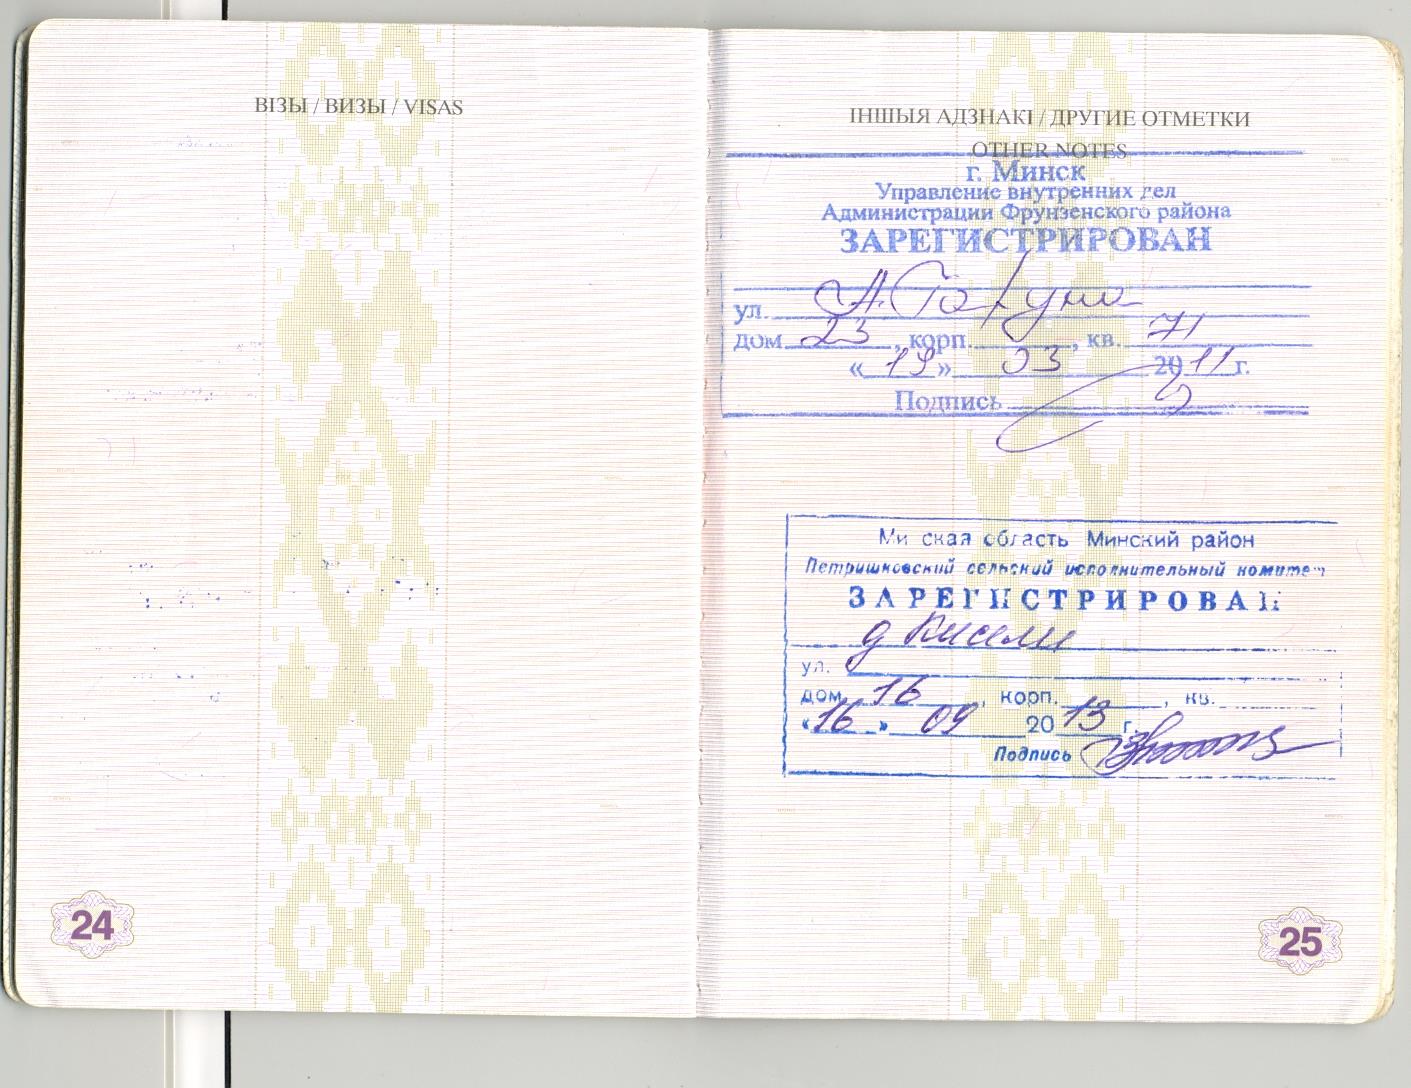 ВІЗЫ / ВИЗЫ / VISAS
24
ІНШЫЯ АДЗНАКІ / ДРУГИЕ ОТМЕТКИ
OTHER NOTES
г. Минск
Управление внутренних дел
Администрации Фрунзенского района
ЗАРЕГИСТРИРОВАН
ул.
дом 23, корп. , кв. 71
«19» 03 2011 г.
Подпись
Минская область Минский район
Петришковский сельский исполнительный комитет
ЗАРЕГИСТРИРОВАН
д Кисели
ул.
дом 16, корп. , кв.
«16» 09 2013 г.
Подпись
25